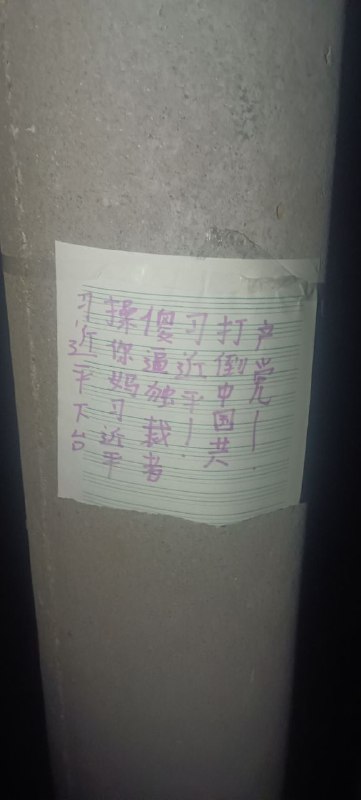 习近平下台
操你妈习近平
傻逼独裁者
习近平！
打倒中国共
产党！